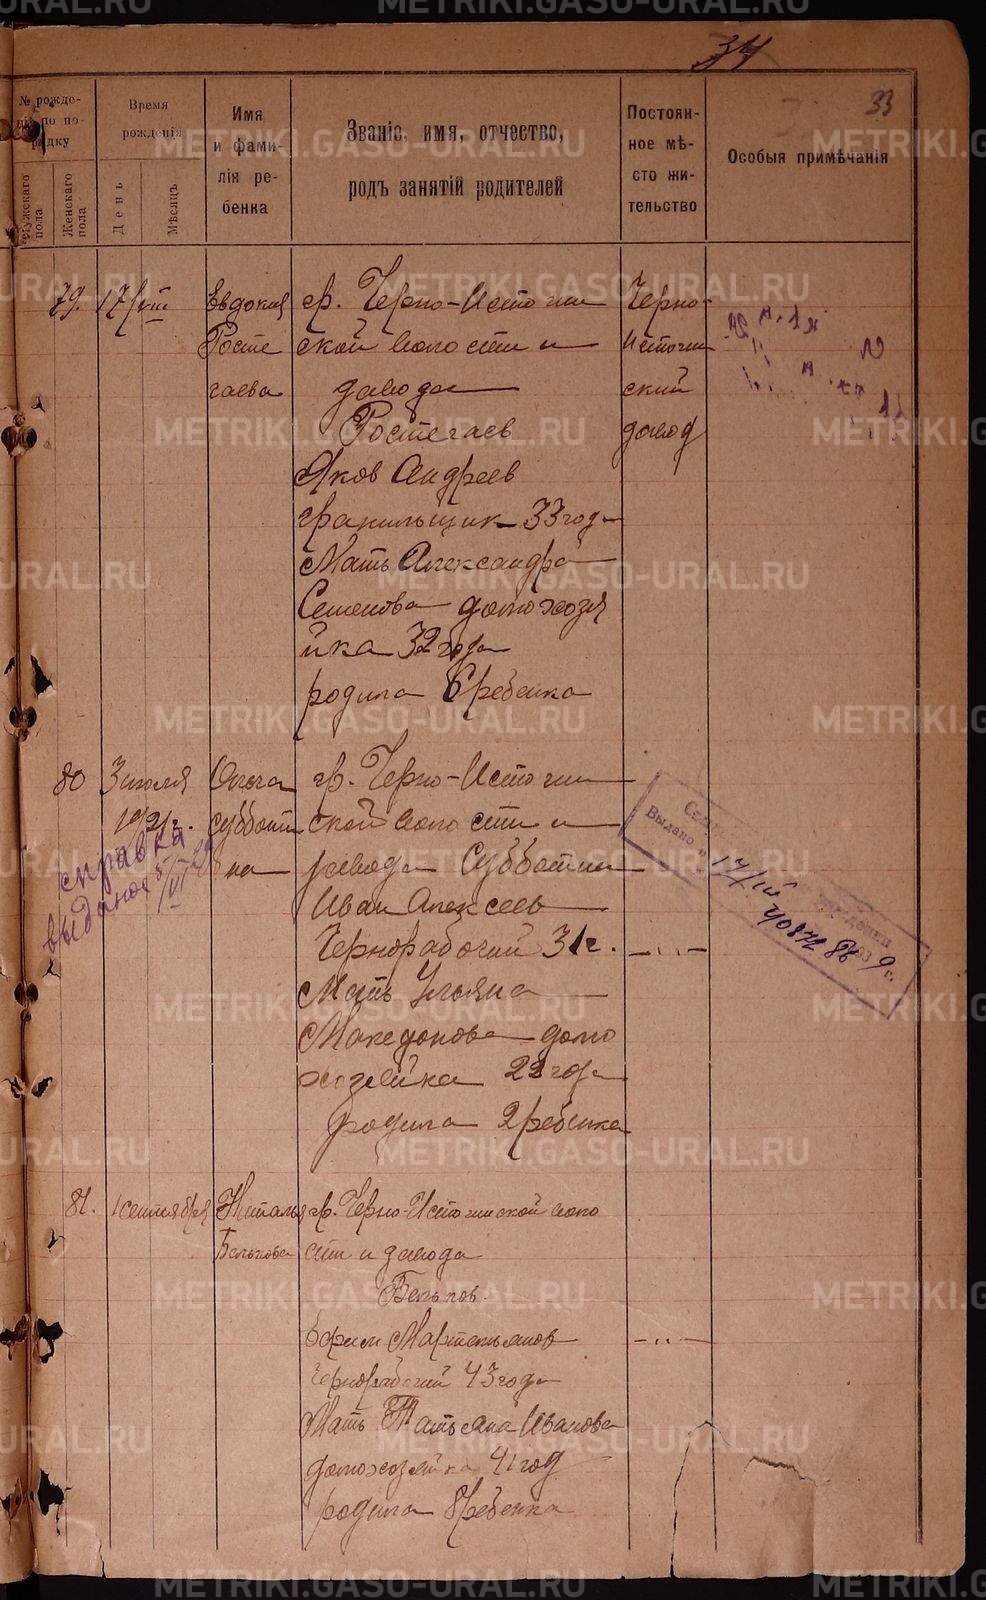 34
33
№ рожде-
ній по по-
рядку
Мужскаго пола
Женскаго пола
Время
рожденія
День
Мѣсяцъ
Имя
и фами-
лія ре-
бенка
Званіе, имя, отчество,
родъ занятій родителей
Постоян-
ное мѣ-
сто жи-
тельство
Особыя примѣчанія
79. 17/VIII
Евдокия
Росте
гаева
гр. Черно-Источин
ской волости и
завода
Ростегаев
Яков Андреев
гранильщик 33 года
Мать Александра
Семенова домохозя
йка 32 года
родила 6 ребенка
Черно-
Источин
ский
завод
80 3 июля
1921 г.
справка
выдана 5/VI
Ольга
Субботи
на
гр. Черно-Источин
ской волости и
завода Субботин
Иван Алексеев
Чернорабочий 31 г.
Мать Ульяна
Македонова домо
хозяйка 22 года
родила 2 ребенка
— „ —
Выдано
17/IV
УО 872 86 9 г.
81. 1 сентября
Наталья
Белькова
гр. Черно-Источинской воло
сти и завода
Бельков
Ефим Мартемьянов
Чернорабочий 43 года
Мать Татьяна Иванова
домохозяйка 41 год
родила 8 ребенка
— „ —
METRIKI.GASO-URAL.RU